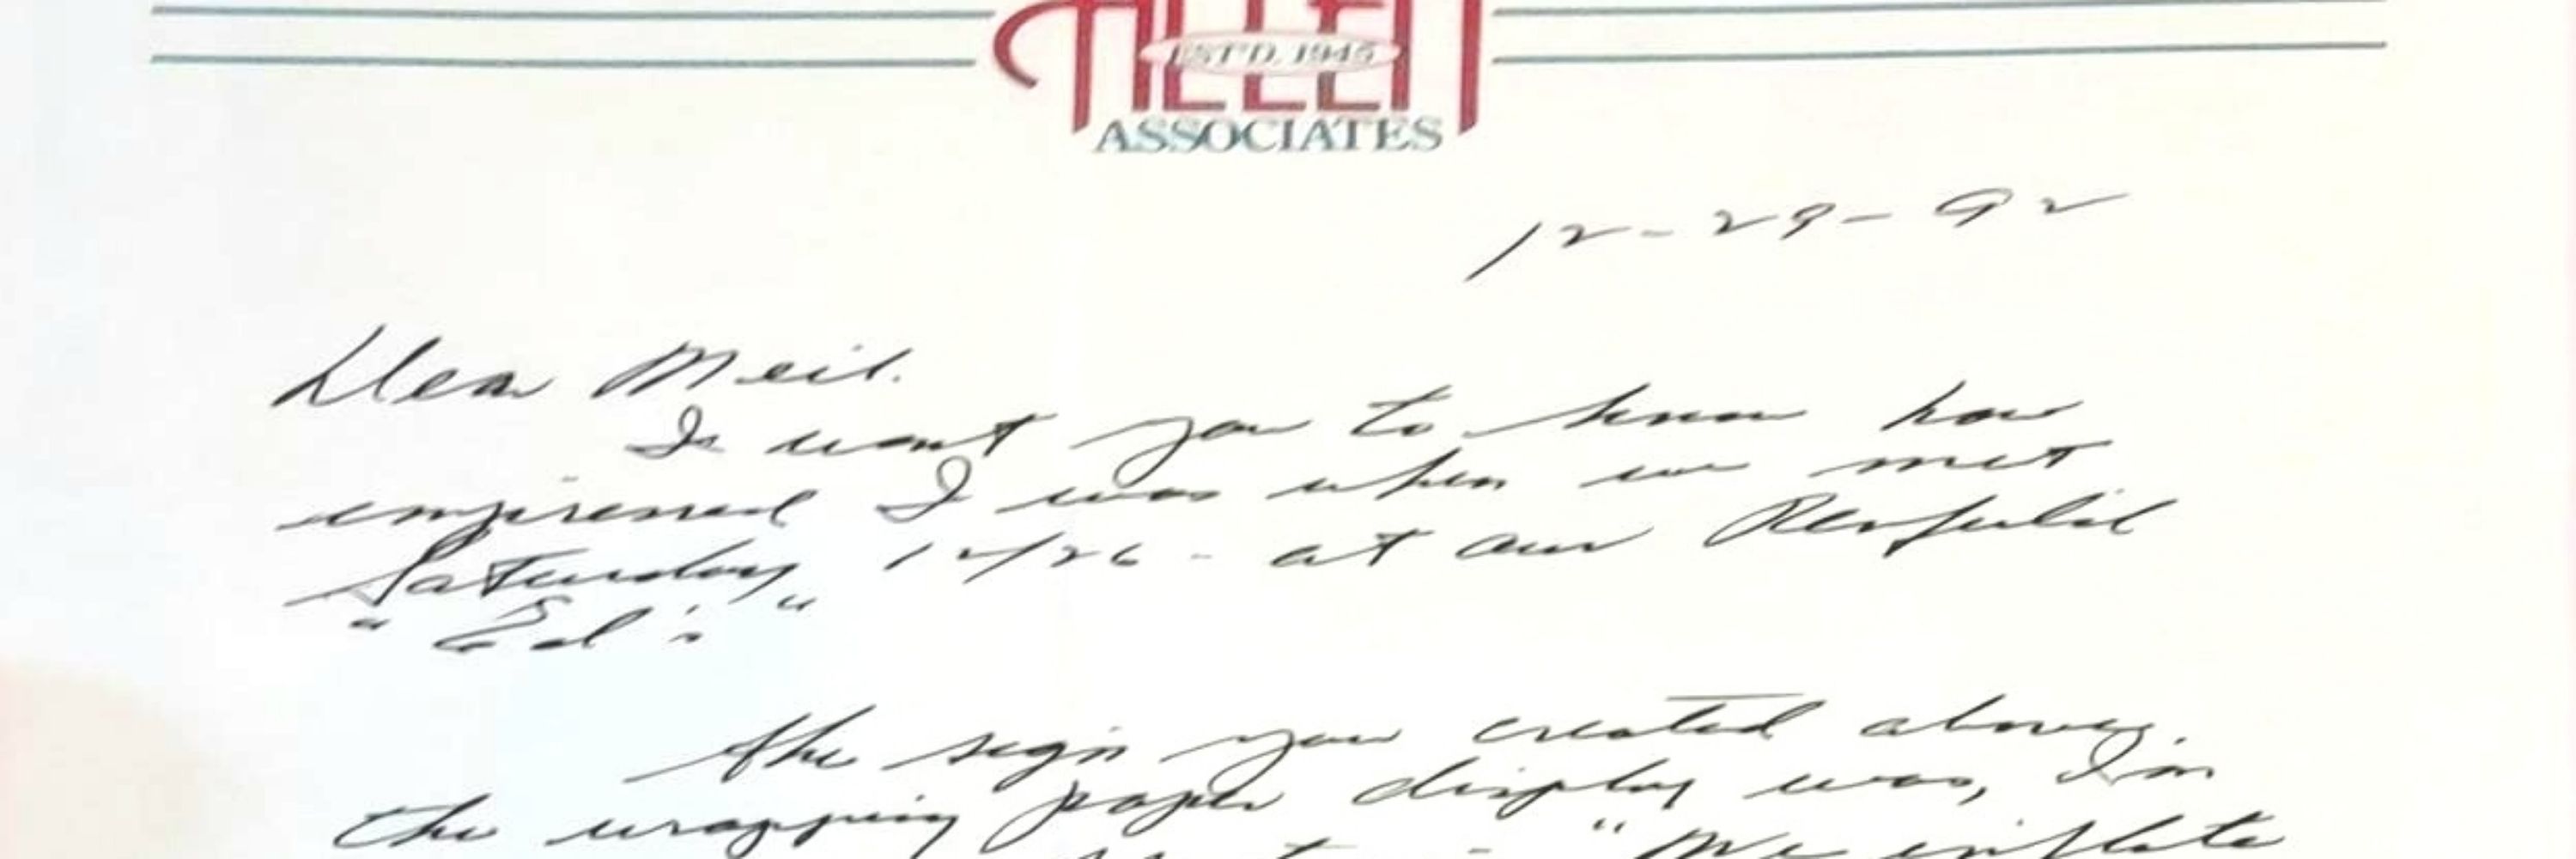 EST'D. 1945
ASSOCIATES
12-29-92
Dear Neil.
I want you to know how
impressed I was when we met
Saturday 12/26 - at our Penfield
"Ed's"
the sign you created above
the wrapping paper display was, I'm
"We inflate